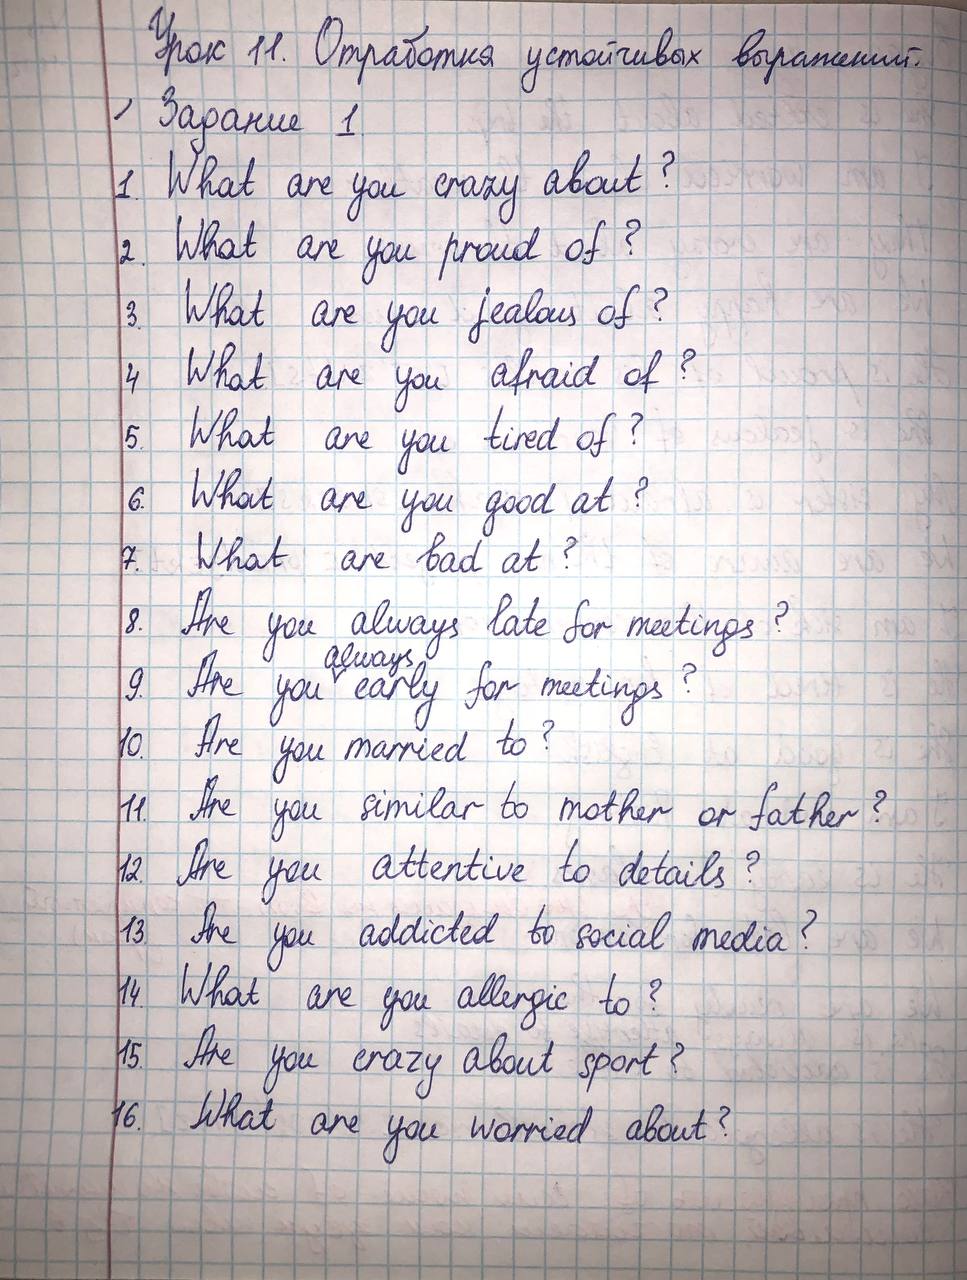 Урок 11. Отработка устойчивых выражений.
Задание 1
1. What are you crazy about?
2. What are you proud of?
3. What are you jealous of?
4 What are you afraid of?
5. What are you tired of?
6. What are you good at?
7. What are bad at?
8. Are you always late for meetings?
9. Are you always early for meetings?
10. Are you married to?
11. Are you similar to mother or father?
12. Are you attentive to details?
13 Are you addicted to social media?
14. What are you allergic to?
15. Are you crazy about sport?
16. What are you worried about?